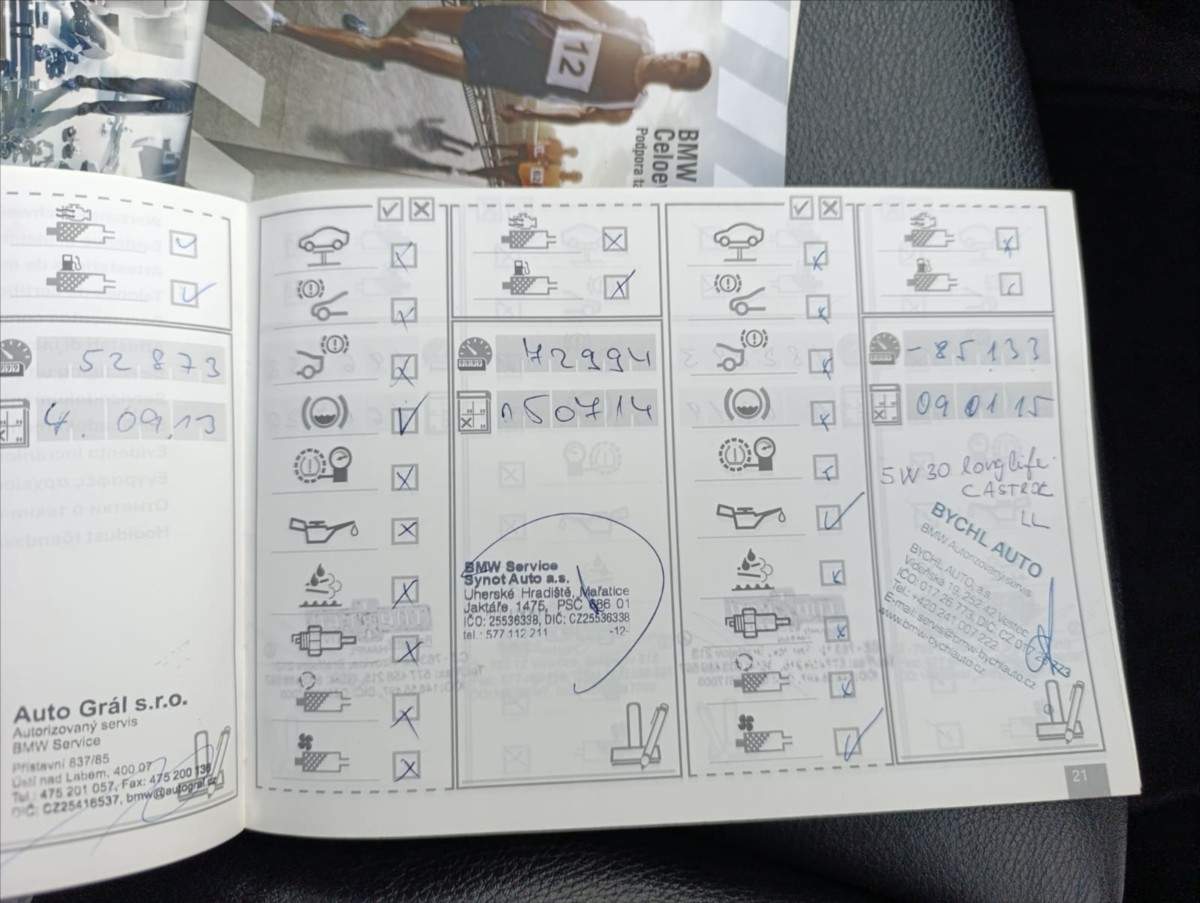 12
BMW
Podpora
52 873
4. 09.13
Auto Grál s.r.o.
Autorizovaný servis
BMW Service
Přístavní 837/85
Ústí nad Labem, 400 07
Tel.: 475 201 057, Fax: 475 200 138
DIČ: CZ25416537, bmw@autogral.cz
72994
150714
BMW Service
Synot Auto a.s.
Uherské Hradiště, Mařatice
Jaktáře, 1475, PSČ 686 01
IČO: 25536338, DIČ: CZ25536338
tel.: 577 112 211 -12-
-85133
090115
5W30 longlife
CASTROL
LL
BYCHL AUTO
BMW Autorizovaný servis
BYCHL AUTO, a.s.
Vídeňská 19, 252 42 Vestec
IČO: 017 26 773, DIČ: CZ 017 26 773
Tel.: +420 241 007 222
E-mail: servis@bmw-bychlauto.cz
www.bmw-bychlauto.cz
21